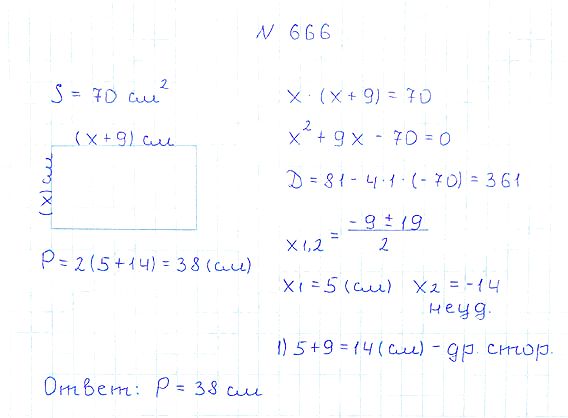 N 666
S = 70 см²
(x+9) см
(x) см
P = 2(5+14) = 38 (см)
x · (x+9) = 70
x² + 9x - 70 = 0
D = 81 - 4·1·(-70) = 361
x1,2 = (-9 ± 19)/2
x1 = 5 (см) x2 = -14
неуд.
1) 5+9 = 14 (см) - др. стор.
Ответ: P = 38 см